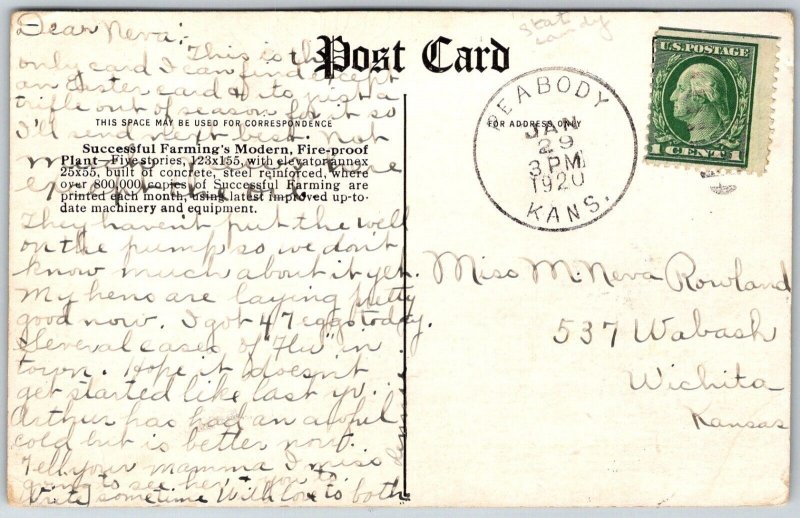 Dear Neva:-
This is the
only card I can find except
an Easter card & is just a
trifle out of season for it so
I'll send next best. Not
much
except the oil.
They haven't put the well
on the pump so we don't
know much about it yet.
My hens are laying pretty
good now. I got 47 eggs today.
Several cases of "Flu" in
town. Hope it doesn't
get started like last yr.
Arthur has had an awful
cold but is better now.
Tell your mamma I miss
going to see her + you to.
Write sometime With love to both
Post Card
THIS SPACE MAY BE USED FOR CORRESPONDENCE
Successful Farming's Modern, Fire-proof
Plant—Five stories, 123x155, with elevator annex
25x55, built of concrete, steel reinforced, where
over 800,000 copies of Successful Farming are
printed each month, using latest improved up-to-
date machinery and equipment.
FOR ADDRESS ONLY
PEABODY
JAN
29
3 PM
1920
KANS.
U.S. POSTAGE
1 CENT 1
Miss M. Neva Rowland
537 Wabash
Wichita
Kansas